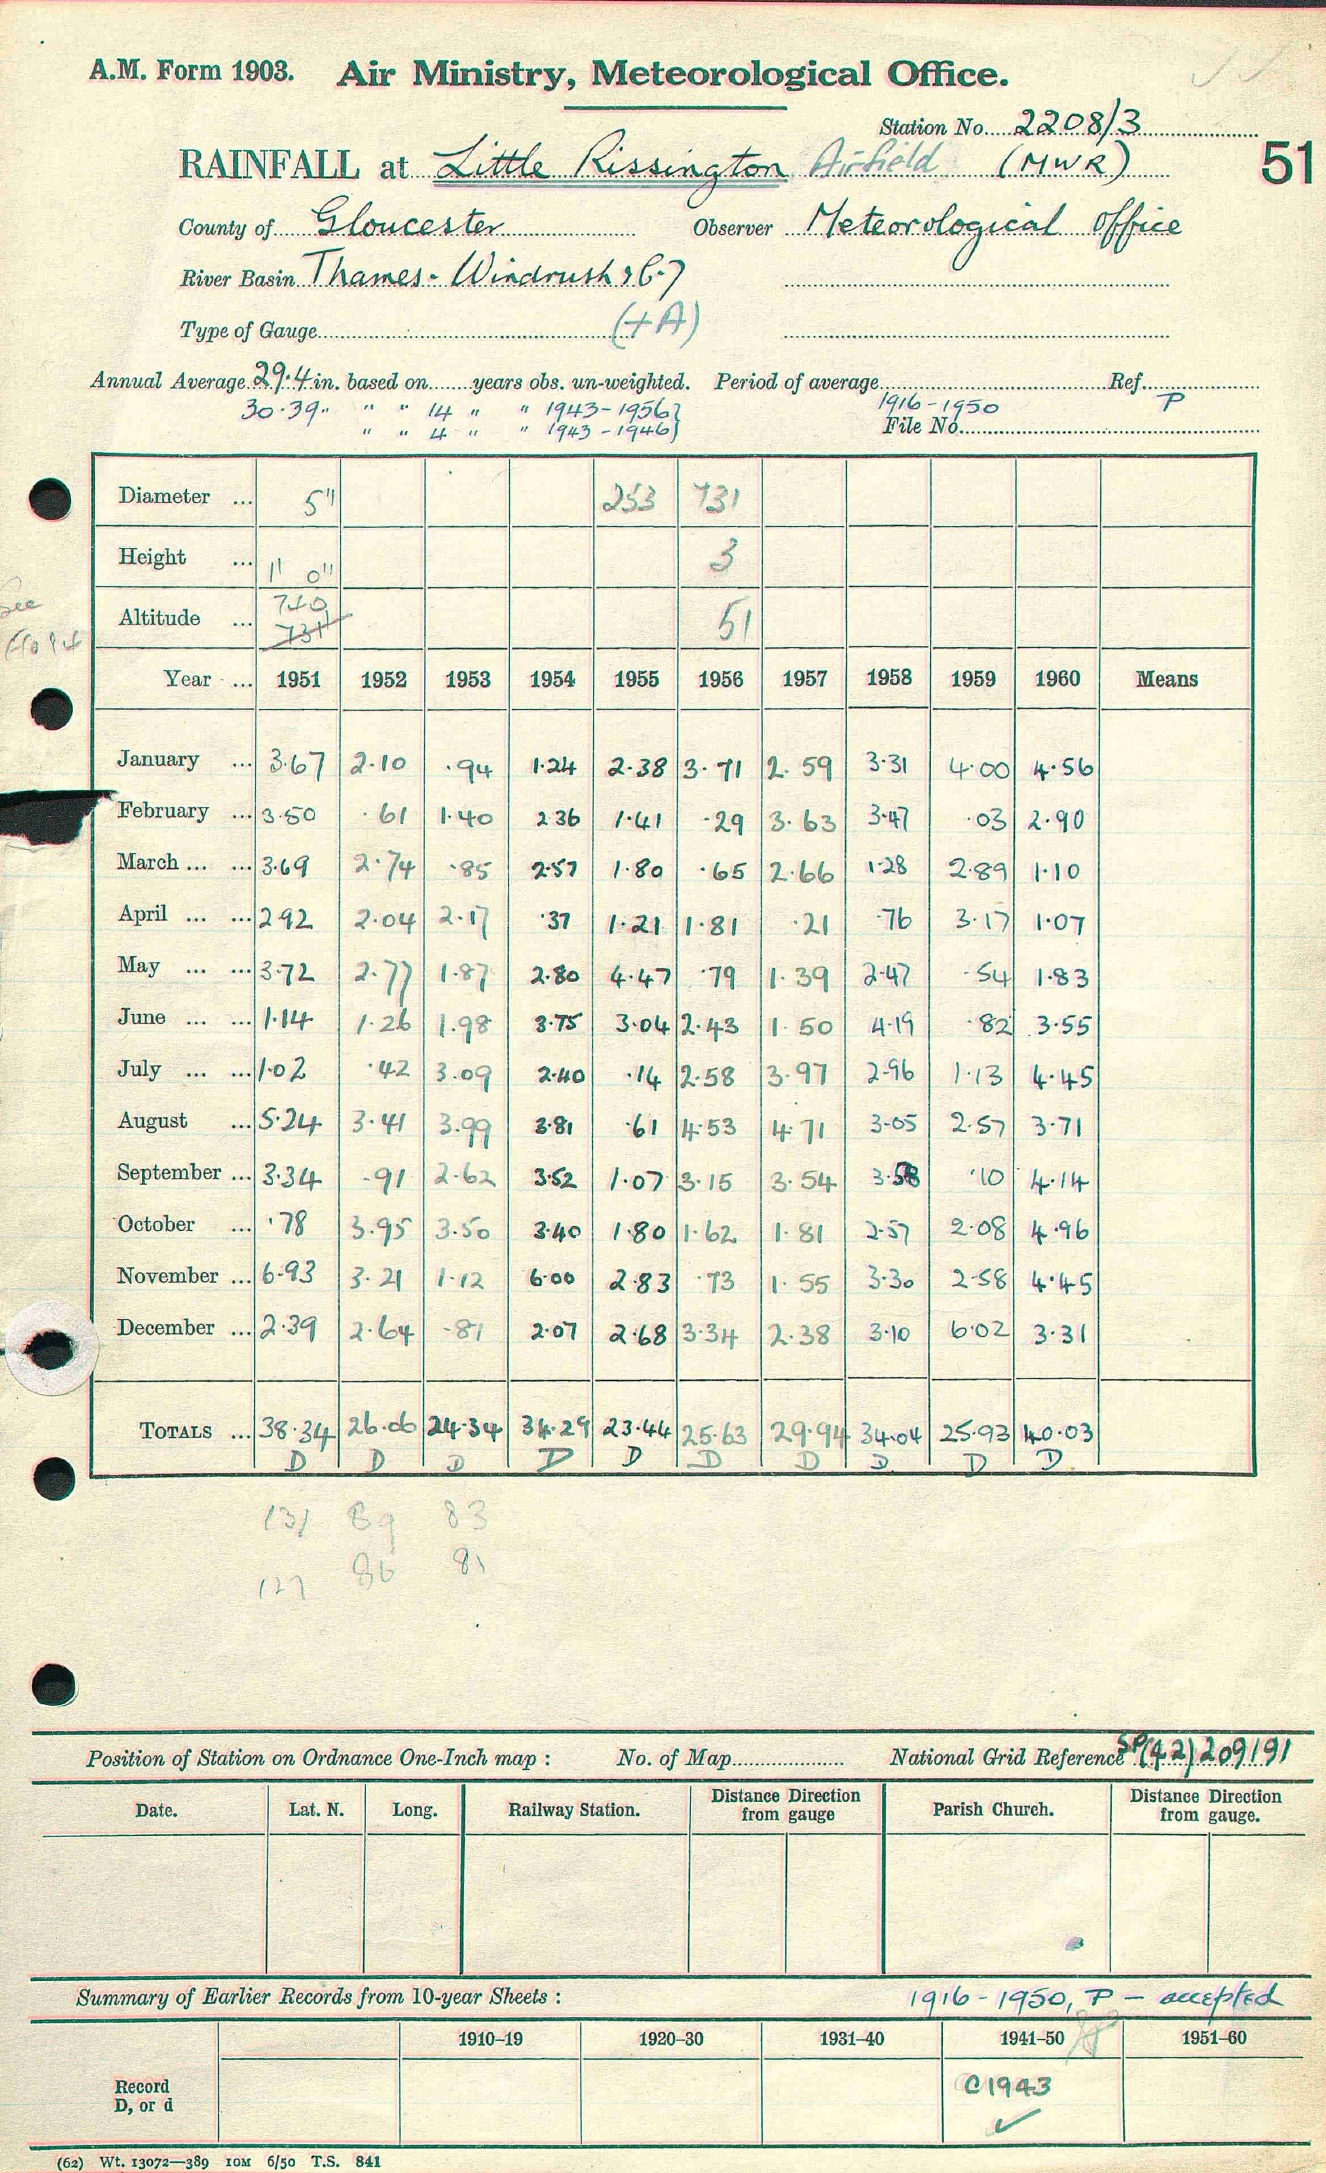 A.M. Form 1903. Air Ministry, Meteorological Office.
Station No. 2208/3
RAINFALL at Little Rissington Airfield (MWR) 51
County of Gloucester Observer Meteorological Office
River Basin Thames - Windrush & 6-7
Type of Gauge (+A)
Annual Average 29.4 in. based on years obs. un-weighted. Period of average Ref.
30.39 " " " 14 " " 1943-1956} 1916-1950 P
" " 4 " " 1943-1946} File No.
Diameter ... 5" 253 731
Height ... 1' 0" 3
Altitude ... 740 731 51
See
Year ... 1951 1952 1953 1954 1955 1956 1957 1958 1959 1960 Means
January ... 3.67 2.10 .94 1.24 2.38 3.71 2.59 3.31 4.00 4.56
February ... 3.50 .61 1.40 2.36 1.41 .29 3.63 3.47 .03 2.90
March ... ... 3.69 2.74 .85 2.57 1.80 .65 2.66 1.28 2.89 1.10
April ... ... 2.92 2.04 2.17 .37 1.21 1.81 .21 .76 3.17 1.07
May ... ... 3.72 2.77 1.87 2.80 4.47 .79 1.39 2.47 .54 1.83
June ... ... 1.14 1.26 1.98 3.75 3.04 2.43 1.50 4.19 .82 3.55
July ... ... 1.02 .42 3.09 2.40 .14 2.58 3.97 2.96 1.13 4.45
August ... 5.24 3.41 3.99 3.81 .61 4.53 4.71 3.05 2.57 3.71
September ... 3.34 .91 2.62 3.52 1.07 3.15 3.54 3.58 .10 4.14
October ... .78 3.95 3.50 3.40 1.80 1.62 1.81 2.57 2.08 4.96
November ... 6.93 3.21 1.12 6.00 2.83 .73 1.55 3.30 2.58 4.45
December ... 2.39 2.64 .81 2.07 2.68 3.34 2.38 3.10 6.02 3.31
TOTALS ... 38.34 26.06 24.34 34.29 23.44 25.63 29.94 34.04 25.93 40.03
D D D D D D D D D D
131 89 83
127 86 81
Position of Station on Ordnance One-Inch map : No. of Map National Grid Reference SP(42)209191
Date. Lat. N. Long. Railway Station. Distance Direction from gauge Parish Church. Distance Direction from gauge.
Summary of Earlier Records from 10-year Sheets : 1916-1950, P - accepted
1910–19 1920–30 1931–40 1941–50 1951–60
Record C1943
D, or d ✓
(62) Wt. 13072—389 10M 6/50 T.S. 841